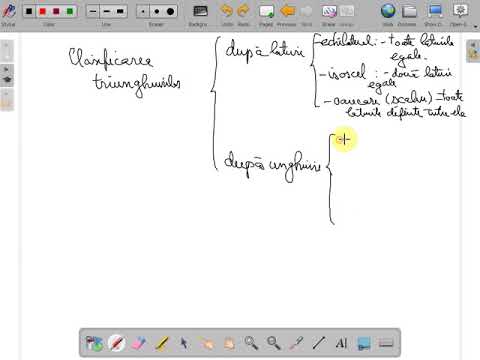 Stylus
Color
Line Width
Eraser
Background
Undo
Redo
Pages
Previous
Next
Boards
Web
Documents
Show Desktop
Open-S
Clasificarea
triunghiurilor
după laturi
- echilateral: - toate laturile
egale.
- isoscel : - două laturi
egale
- oarecare (scalen) - toate
laturile diferite între ele
după unghiuri